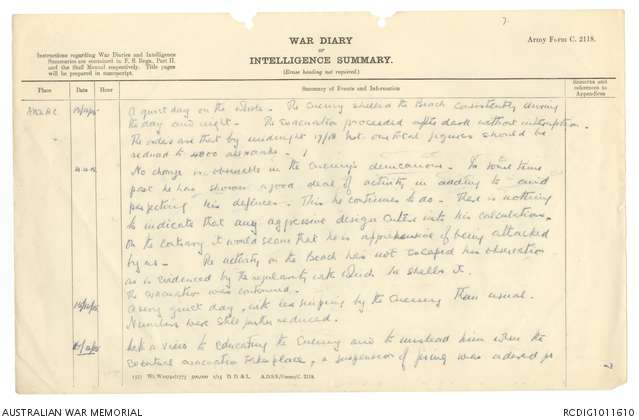 7.
WAR DIARY
or
INTELLIGENCE SUMMARY.
(Erase heading not required.)
Army Form C. 2118.
Instructions regarding War Diaries and Intelligence
Summaries are contained in F. S. Regs., Part II.
and the Staff Manual respectively. Title pages
will be prepared in manuscript.
Place Date Hour Summary of Events and Information Remarks and
references to
Appendices
ANZAC A quiet day on the whole. The Enemy shelled the Beach consistently during
the day and night. The evacuation proceeded after dark without interruption.
The orders are that by midnight 17/18 our total figures should be
reduced to all ranks.
No change is observable in the Enemy's For some time
past he has shown a good deal of activity in adding to and
perfecting his defences. This he continues to do. There is nothing
to indicate that any aggressive design enters into his calculations.
On the contrary it would seem that he is apprehensive of being attacked
by us. The activity on the Beach has not escaped his observation
as is evidenced by the regularity with which he shells it.
The evacuation was continued.
A very quiet day, with less sniping by the Enemy than usual.
Numbers were still further reduced.
With a view to educating the Enemy and to mislead him when the
eventual evacuation takes place, a suspension of firing was ordered for
AUSTRALIAN WAR MEMORIAL
RCDIG1011610